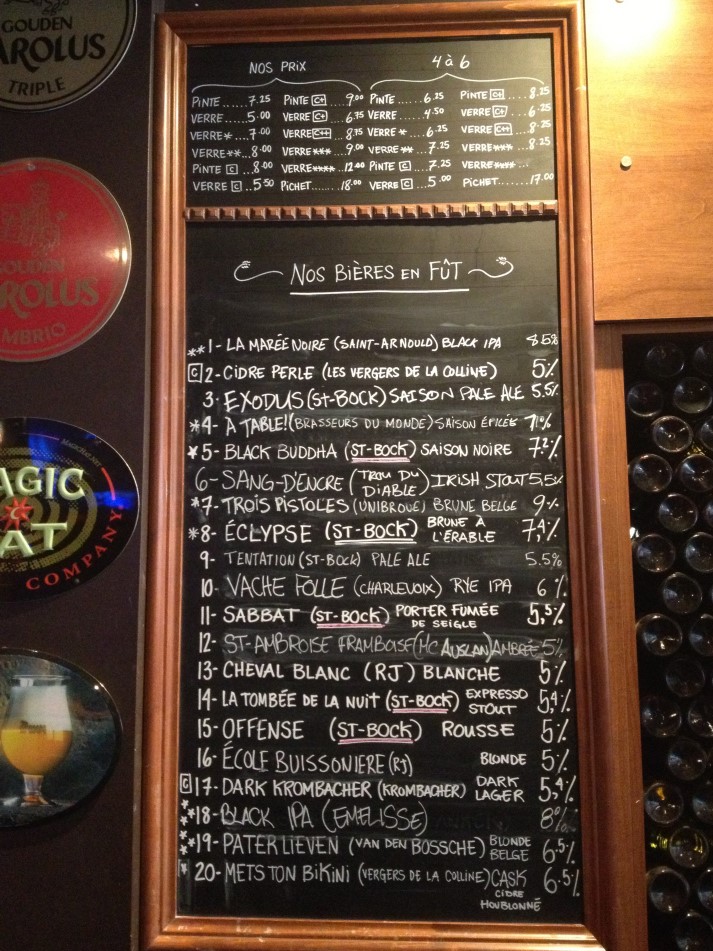 GOUDEN
CAROLUS
TRIPLE
GOUDEN
CAROLUS
AMBRIO
MAGIC
HAT
COMPANY
NOS PRIX
PINTE......7.25 PINTE [C+] ....9.00
VERRE......5.00 VERRE [C+] ...6.75
VERRE*....7.00 VERRE [C++] ...8.75
VERRE**...8.00 VERRE***....9.00
PINTE [C] ...8.00 VERRE****...12.00
VERRE [C] ...5.50 PICHET.......18.00
4 à 6
PINTE......6.25 PINTE [C+] ....8.25
VERRE .....4.50 VERRE [C+] ...6.25
VERRE * ...6.25 VERRE [C++] ...8.25
VERRE **...7.25 VERRE***....8.25
PINTE [C] ...7.25 VERRE****...
VERRE [C] ...5.00 PICHET......17.00
NOS BIÈRES EN FÛT
**1- LA MARÉE NOIRE (SAINT-ARNOULD) BLACK IPA 8.5%
[C] 2- CIDRE PERLE (LES VERGERS DE LA COLLINE) 5%
3- EXODUS (ST-BOCK) SAISON PALE ALE 5.5%
*4- À TABLE! (BRASSEURS DU MONDE) SAISON ÉPICÉE 7%
*5- BLACK BUDDHA (ST-BOCK) SAISON NOIRE 7.2%
6- SANG-D'ENCRE (TROU DU DIABLE) IRISH STOUT 5,5%
*7- TROIS PISTOLES (UNIBROUE) BRUNE BELGE 9%
*8- ÉCLYPSE (ST-BOCK) BRUNE À L'ÉRABLE 7,4%
9- TENTATION (ST-BOCK) PALE ALE 5.5%
10- VACHE FOLLE (CHARLEVOIX) RYE IPA 6%
11- SABBAT (ST-BOCK) PORTER FUMÉE DE SEIGLE 5,5%
12- ST-AMBROISE FRAMBOISE (MC AUSLAN) AMBRÉE 5%
13- CHEVAL BLANC (RJ) BLANCHE 5%
14- LA TOMBÉE DE LA NUIT (ST-BOCK) EXPRESSO STOUT 5,4%
15- OFFENSE (ST-BOCK) ROUSSE 5%
16- ÉCOLE BUISSONIERE (RJ) BLONDE 5%
[C] 17- DARK KROMBACHER (KROMBACHER) DARK LAGER 5,4%
**18- BLACK IPA (EMELISSE) 8%
**19- PATER LIEVEN (VAN DEN BOSSCHE) BLONDE BELGE 6.5%
[*] 20- METS TON BIKINI (VERGERS DE LA COLLINE) CASK CIDRE HOUBLONNÉ 6.5%